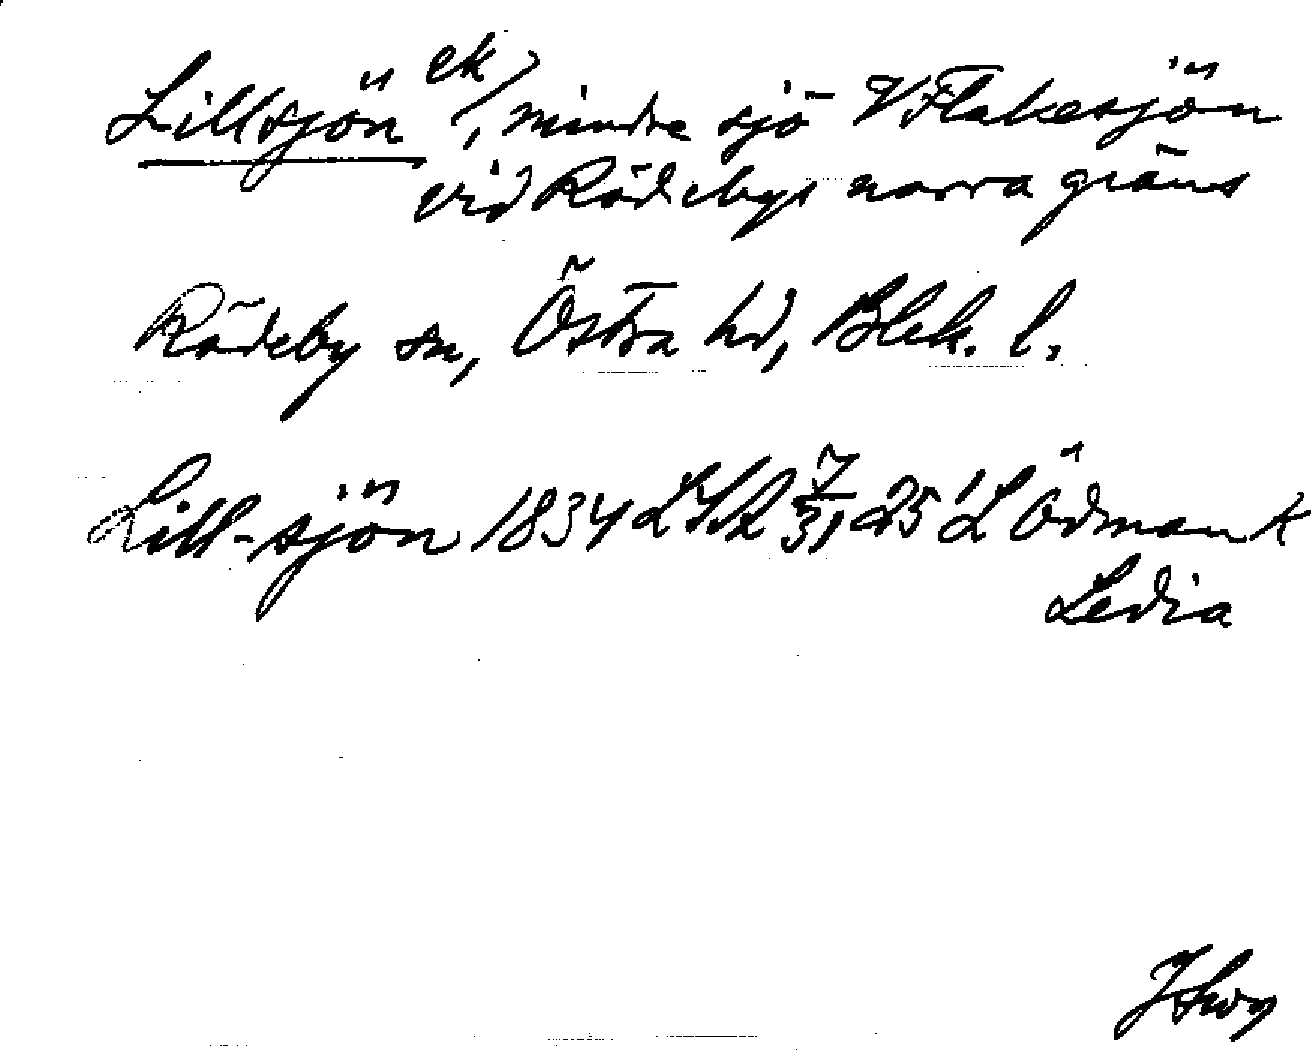 Lillsjön ek/, mindre sjö V Flakesjön
vid Rödebys norra gräns
Rödeby sn, Östra hd, Blek. l.
Lill-sjön 1834 LSA 7/31 25 L Ödman k
Ledja